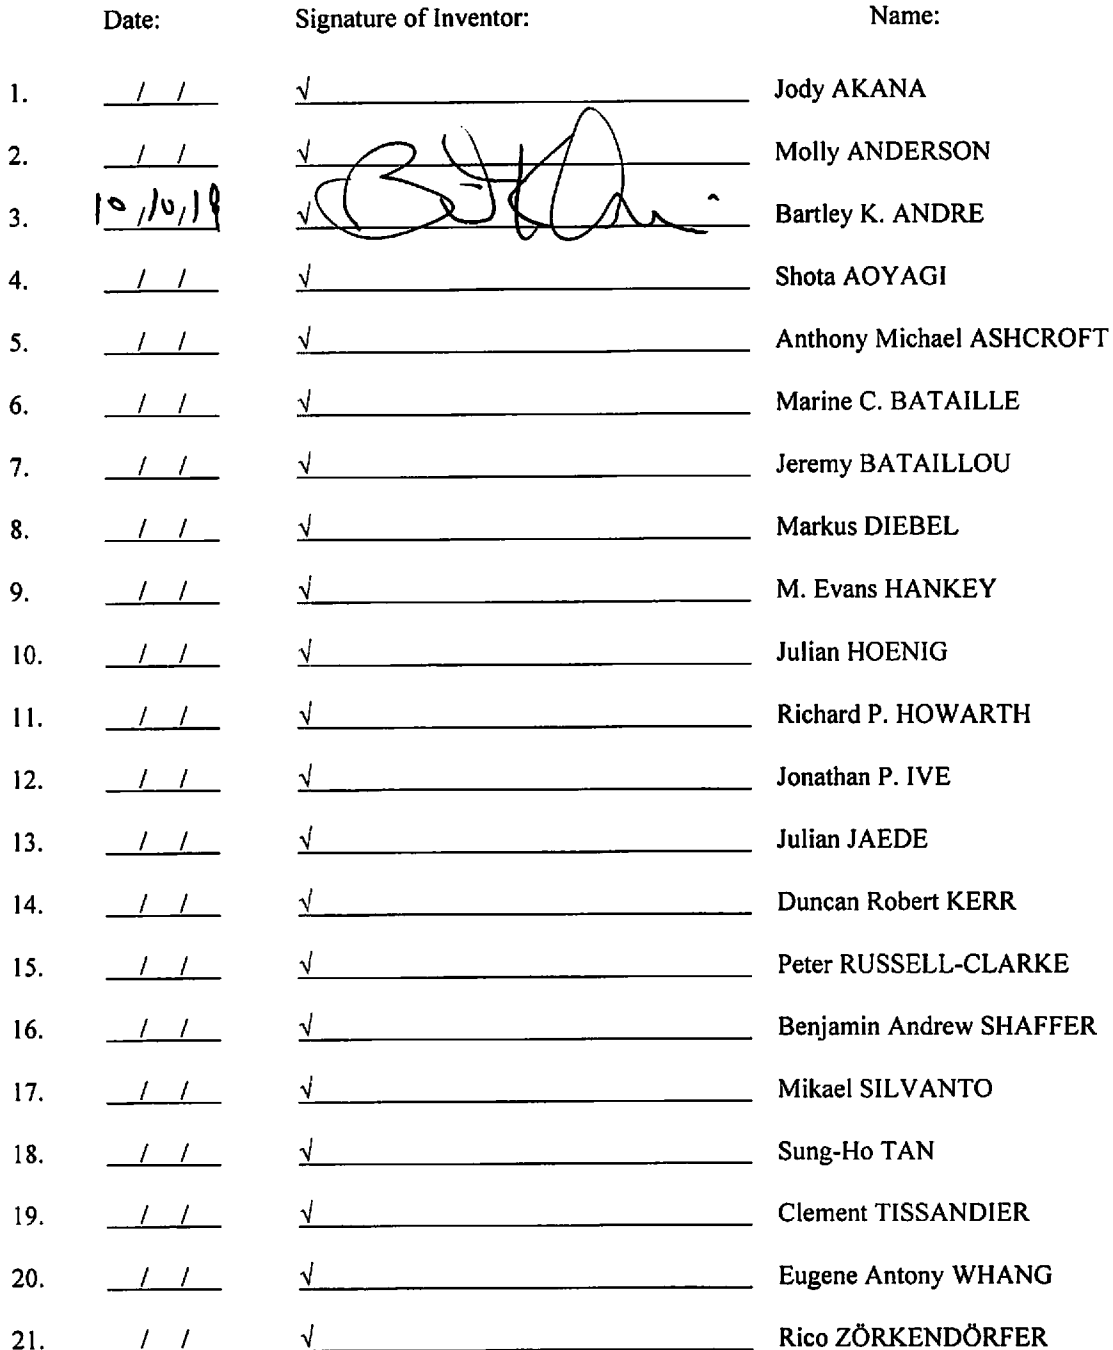 Date: Signature of Inventor: Name:
1. / / √ Jody AKANA
2. / / √ Molly ANDERSON
3. 10/10/18 √ Bartley K. ANDRE
4. / / √ Shota AOYAGI
5. / / √ Anthony Michael ASHCROFT
6. / / √ Marine C. BATAILLE
7. / / √ Jeremy BATAILLOU
8. / / √ Markus DIEBEL
9. / / √ M. Evans HANKEY
10. / / √ Julian HOENIG
11. / / √ Richard P. HOWARTH
12. / / √ Jonathan P. IVE
13. / / √ Julian JAEDE
14. / / √ Duncan Robert KERR
15. / / √ Peter RUSSELL-CLARKE
16. / / √ Benjamin Andrew SHAFFER
17. / / √ Mikael SILVANTO
18. / / √ Sung-Ho TAN
19. / / √ Clement TISSANDIER
20. / / √ Eugene Antony WHANG
21. / / √ Rico ZÖRKENDÖRFER